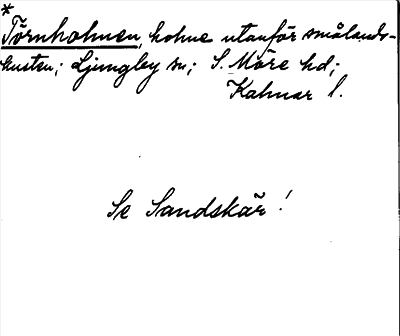 *
Törnholmen, holme utanför smålands-
kusten; Ljungby sn; S. Möre hd;
Kalmar l.
Se Sandskär!